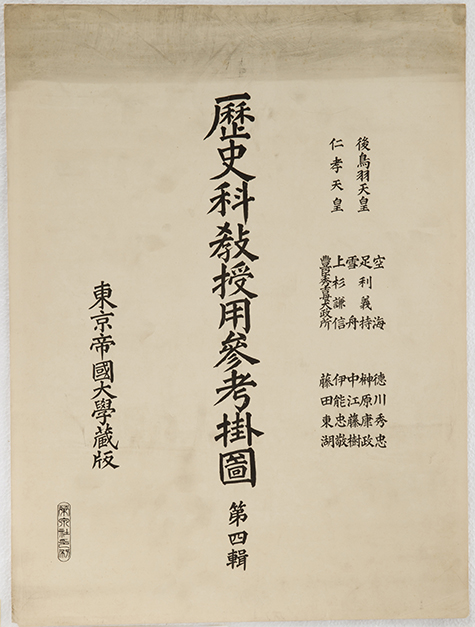 後鳥羽天皇
仁孝天皇
空海
足利義持
雪舟
上杉謙信
豊臣秀吉大政所
德川秀忠
榊原康政
中江藤樹
伊能忠敬
藤田東湖
歷史科教授用參考掛圖
第四輯
東京帝國大學藏版